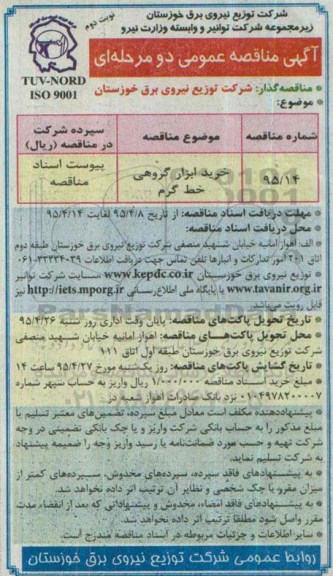 شرکت توزیع نیروی برق خوزستان
زیرمجموعه شرکت توانیر و وابسته وزارت نیرو
نوبت دوم
آگهی مناقصه عمومی دو مرحله‌ای
TUV-NORD
ISO 9001
* مناقصه‌گذار: شرکت توزیع نیروی برق خوزستان
* موضوع:
شماره مناقصه
موضوع مناقصه
سپرده شرکت در مناقصه (ریال)
۹۵/۱۴
خرید ابزار گروهی خط گرم
پیوست اسناد مناقصه
* مهلت دریافت اسناد مناقصه: از تاریخ ۹۵/۴/۸ لغایت ۹۵/۴/۱۴
* محل دریافت اسناد مناقصه:
الف: اهواز امانیه خیابان شهید منصفی شرکت توزیع نیروی برق خوزستان طبقه دوم
اتاق ۲۰۱ امور تدارکات و انبارها تلفن تماس جهت دریافت اطلاعات ۳۹-۳۳۳۴۰۰۶۱
توزیع نیروی برق خوزستان www.kepdc.co.ir سایت شرکت توانیر
www.tavanir.org.ir یا پایگاه ملی اطلاع‌رسانی http://iets.mporg.ir نیز
قابل رویت می‌باشد.
* تاریخ تحویل پاکت‌های مناقصه: پایان وقت اداری روز شنبه ۹۵/۴/۲۶
* محل تحویل پاکت‌های مناقصه: اهواز امانیه خیابان شهید منصفی
شرکت توزیع نیروی برق خوزستان طبقه اول اتاق ۱۱۱
* تاریخ گشایش پاکت‌های مناقصه: روز یکشنبه مورخ ۹۵/۴/۲۷ ساعت ۱۴
* مبلغ خرید اسناد مناقصه ۱/۰۰۰/۰۰۰ ریال واریز به حساب سپهر شماره
۰۱۰۴۹۷۸۲۰۰۰۰۷ نزد بانک صادرات اهواز شعبه
* پیشنهاددهنده مکلف است معادل مبلغ سپرده، تضمین‌های معتبر تسلیم یا
مبلغ مذکور را به حساب بانکی شرکت واریز و یا چک بانکی تضمینی در وجه
شرکت تهیه و حسب مورد ضمانت‌نامه یا رسید واریز وجه را ضمیمه پیشنهاد
به شرکت تسلیم نماید.
* به پیشنهادهای فاقد سپرده، سپرده‌های مخدوش، سپرده‌های کمتر از
میزان مقرر، یا چک شخصی و نظایر آن ترتیب اثر داده نخواهد شد.
* به پیشنهادهای فاقد امضاء، مخدوش و پیشنهاداتی که بعد از انقضاء مدت
مقرر واصل شود مطلقا ترتیب اثر داده نخواهد شد.
* سایر اطلاعات و جزئیات مربوطه در اسناد مناقصه مندرج است.
روابط عمومی شرکت توزیع نیروی برق خوزستان